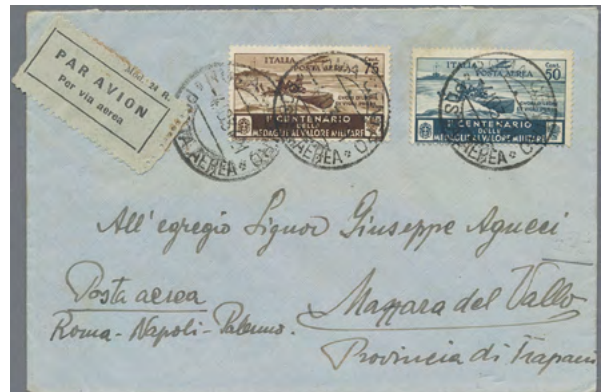 Mod. 24 R.
PAR AVION
Per via aerea
ITALIA
POSTA AEREA
Cent. 75
I° CENTENARIO
DELLE
MEDAGLIE AL VALORE MILITARE
ITALIA
POSTA AEREA
Cent. 50
I° CENTENARIO
DELLE
MEDAGLIE AL VALORE MILITARE
POSTA AEREA
All' egregio Signor Giuseppe Agueci
Posta aerea
Mazzara del Vallo
Roma - Napoli - Palermo.
Provincia di Trapani